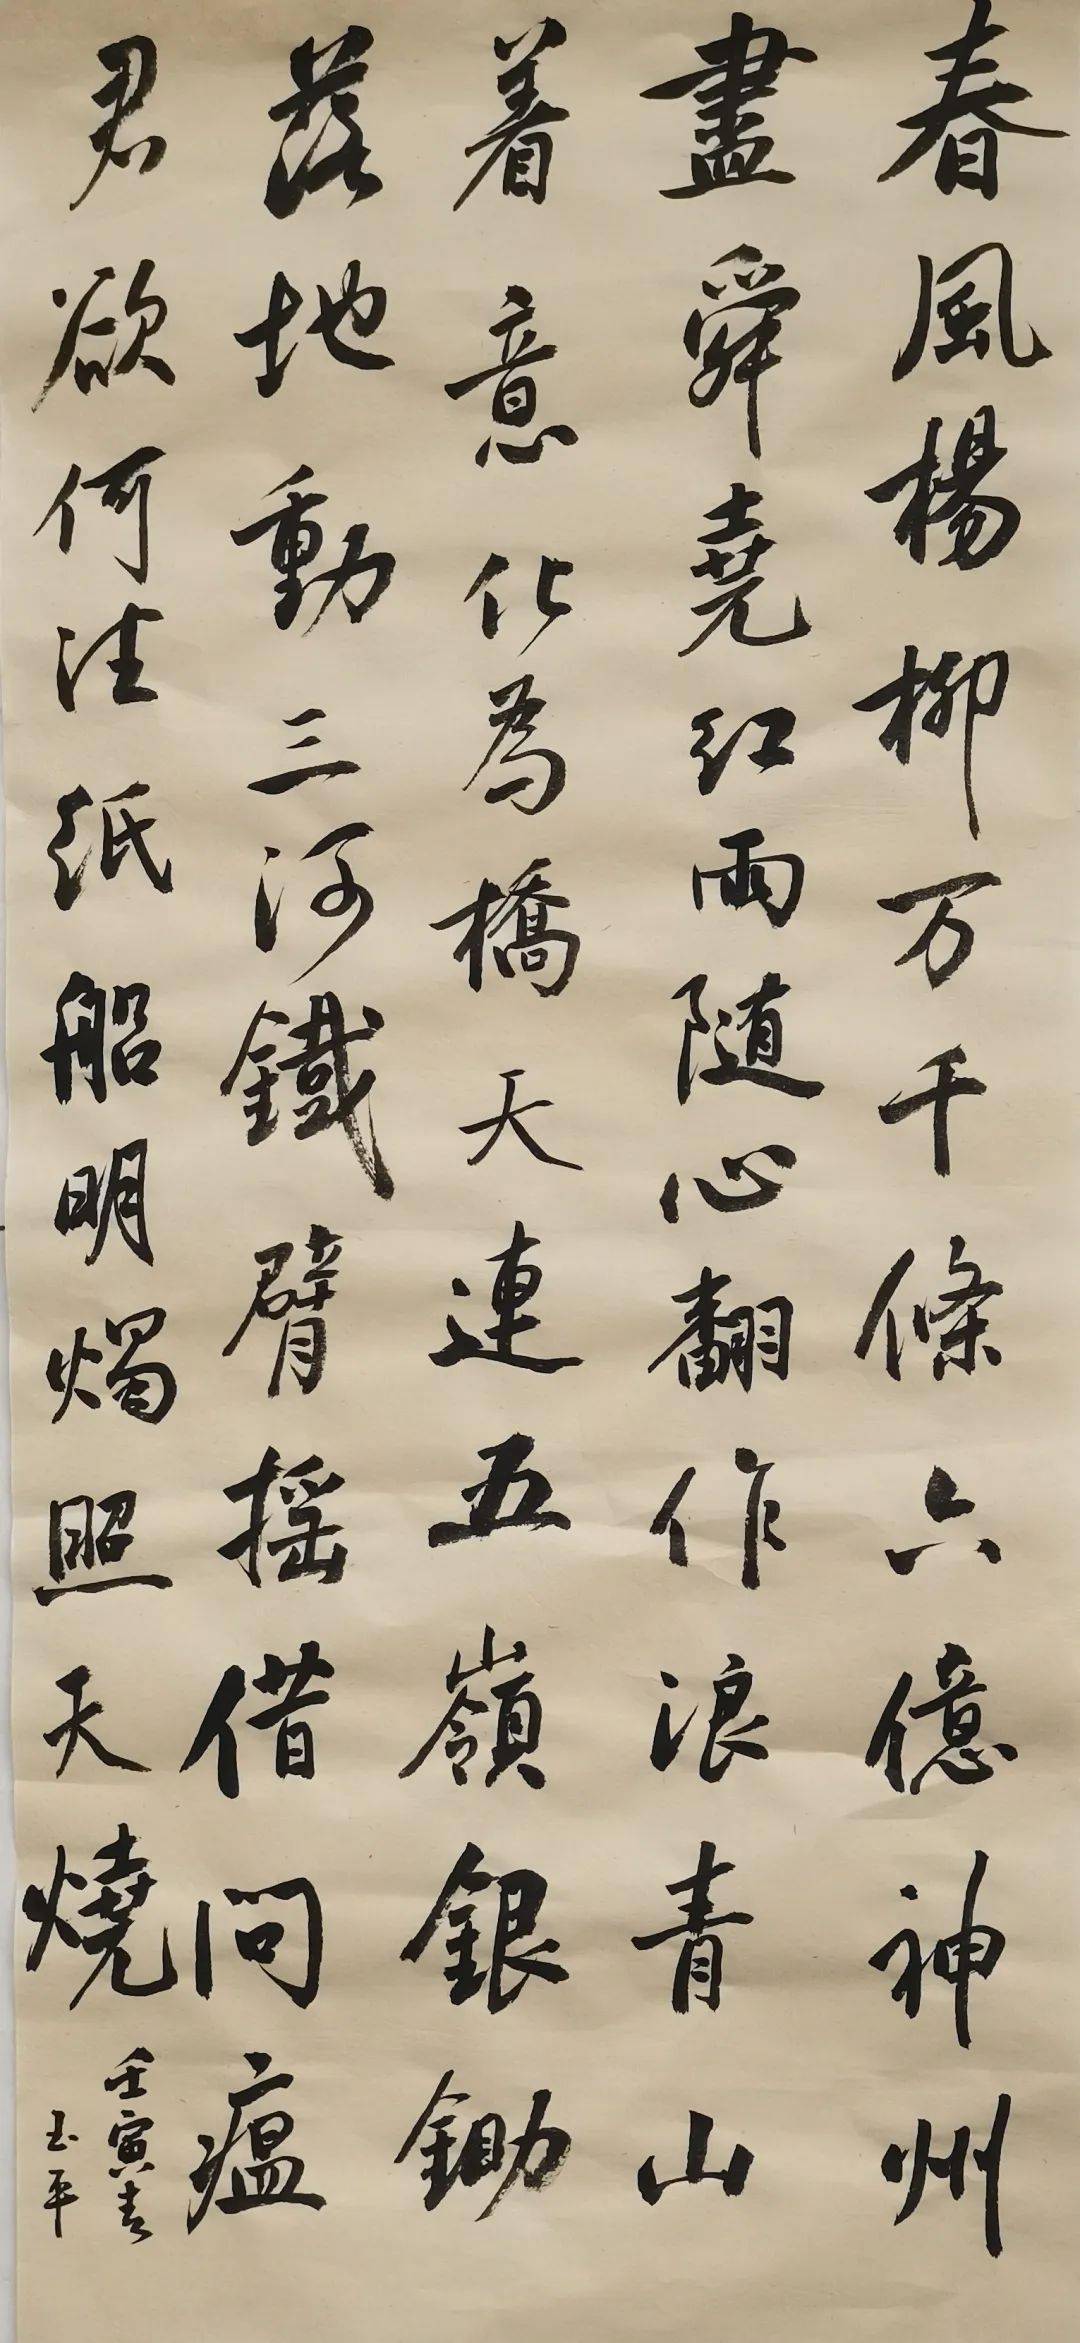 春風楊柳万千條六億神州
盡舜堯红雨随心翻作浪青山
着意化為橋天連五嶺銀鋤
落地動三河鐵臂摇借问瘟
君欲何往紙船明燭照天燒
壬寅春
玉平